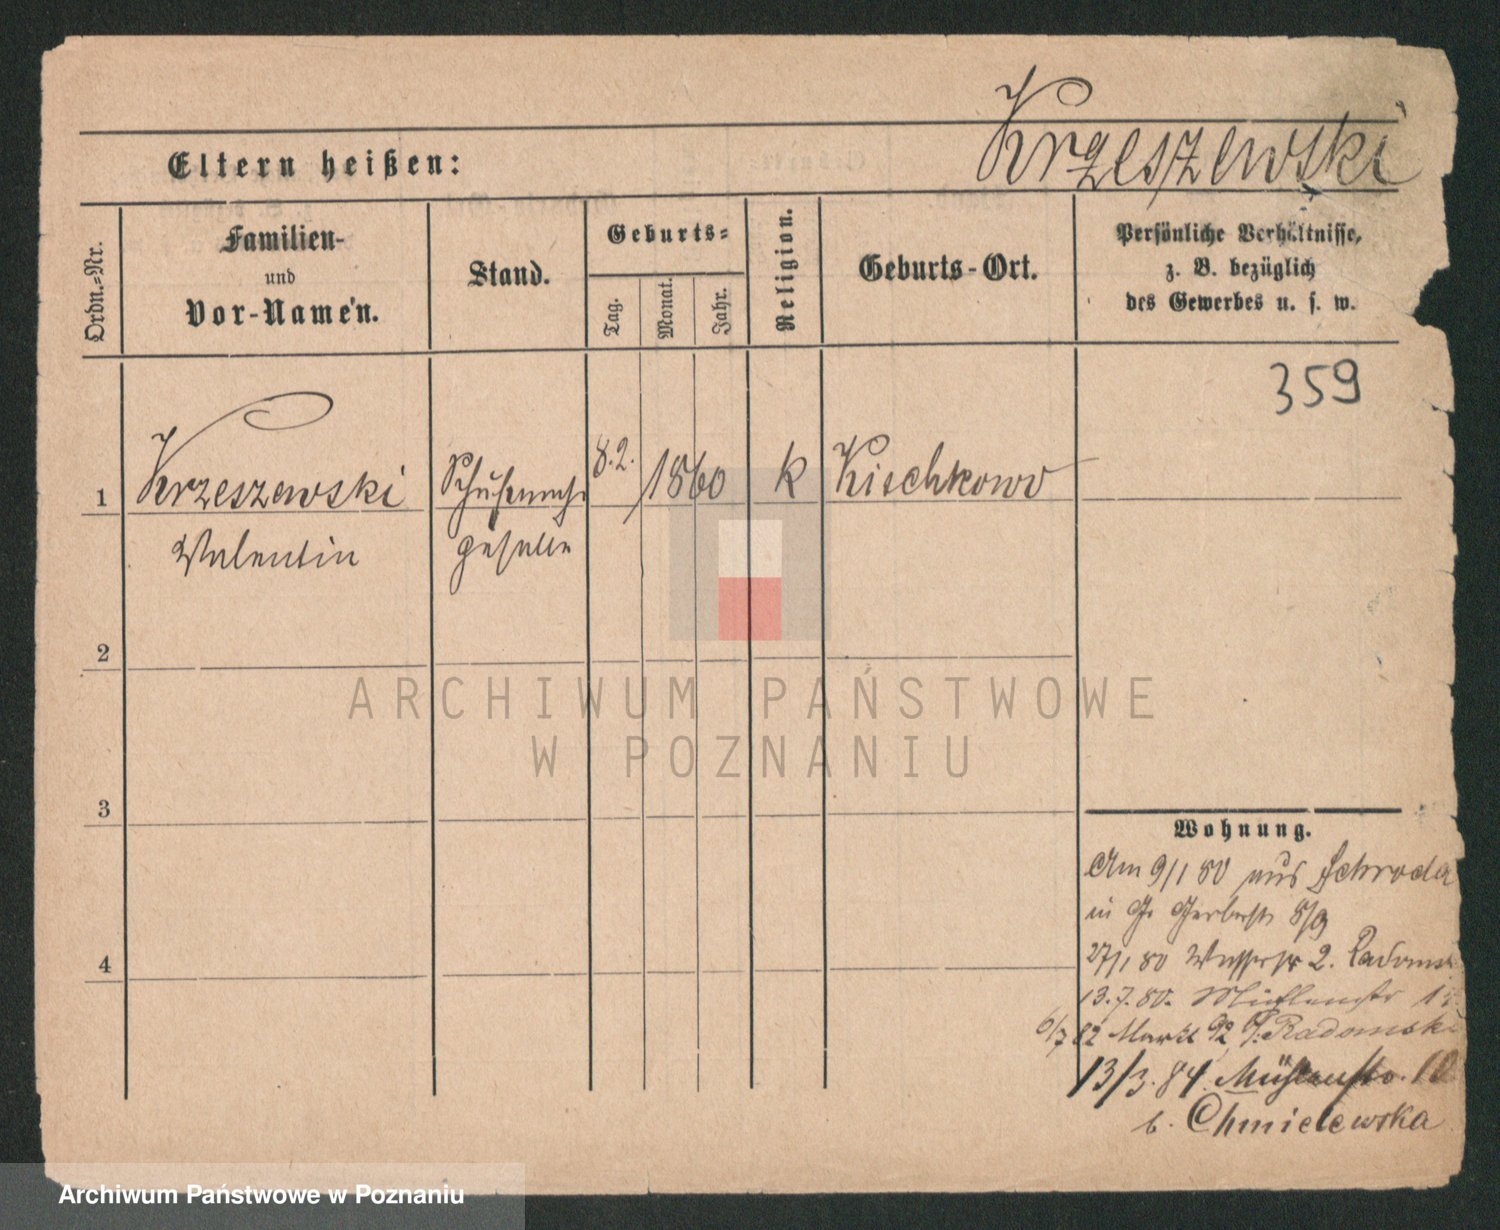 Krzeszewski
Eltern heißen:
Ordn.-Nr.
Familien-
und
Vor-Namen.
Stand.
Geburts-
Tag.
Monat.
Jahr.
Religion.
Geburts-Ort.
Persönliche Verhältnisse,
z. B. bezüglich
des Gewerbes u. s. w.
359
1
Krzeszewski
Valentin
Schuhmach
geselle
8.2.
1860
k
Kischkowo
2
ARCHIWUM PAŃSTWOWE
W POZNANIU
3
Wohnung.
Am 9/1 80 aus Schroda
in Gr Gerberstr 8/9
4
27/1 80 Wasserstr 2.
13.7.80. Mühlenstr
6/7 82 Markt 92 Radomski
13/3.84. Mühlenstr. 10
b. Chmielewska
Archiwum Państwowe w Poznaniu